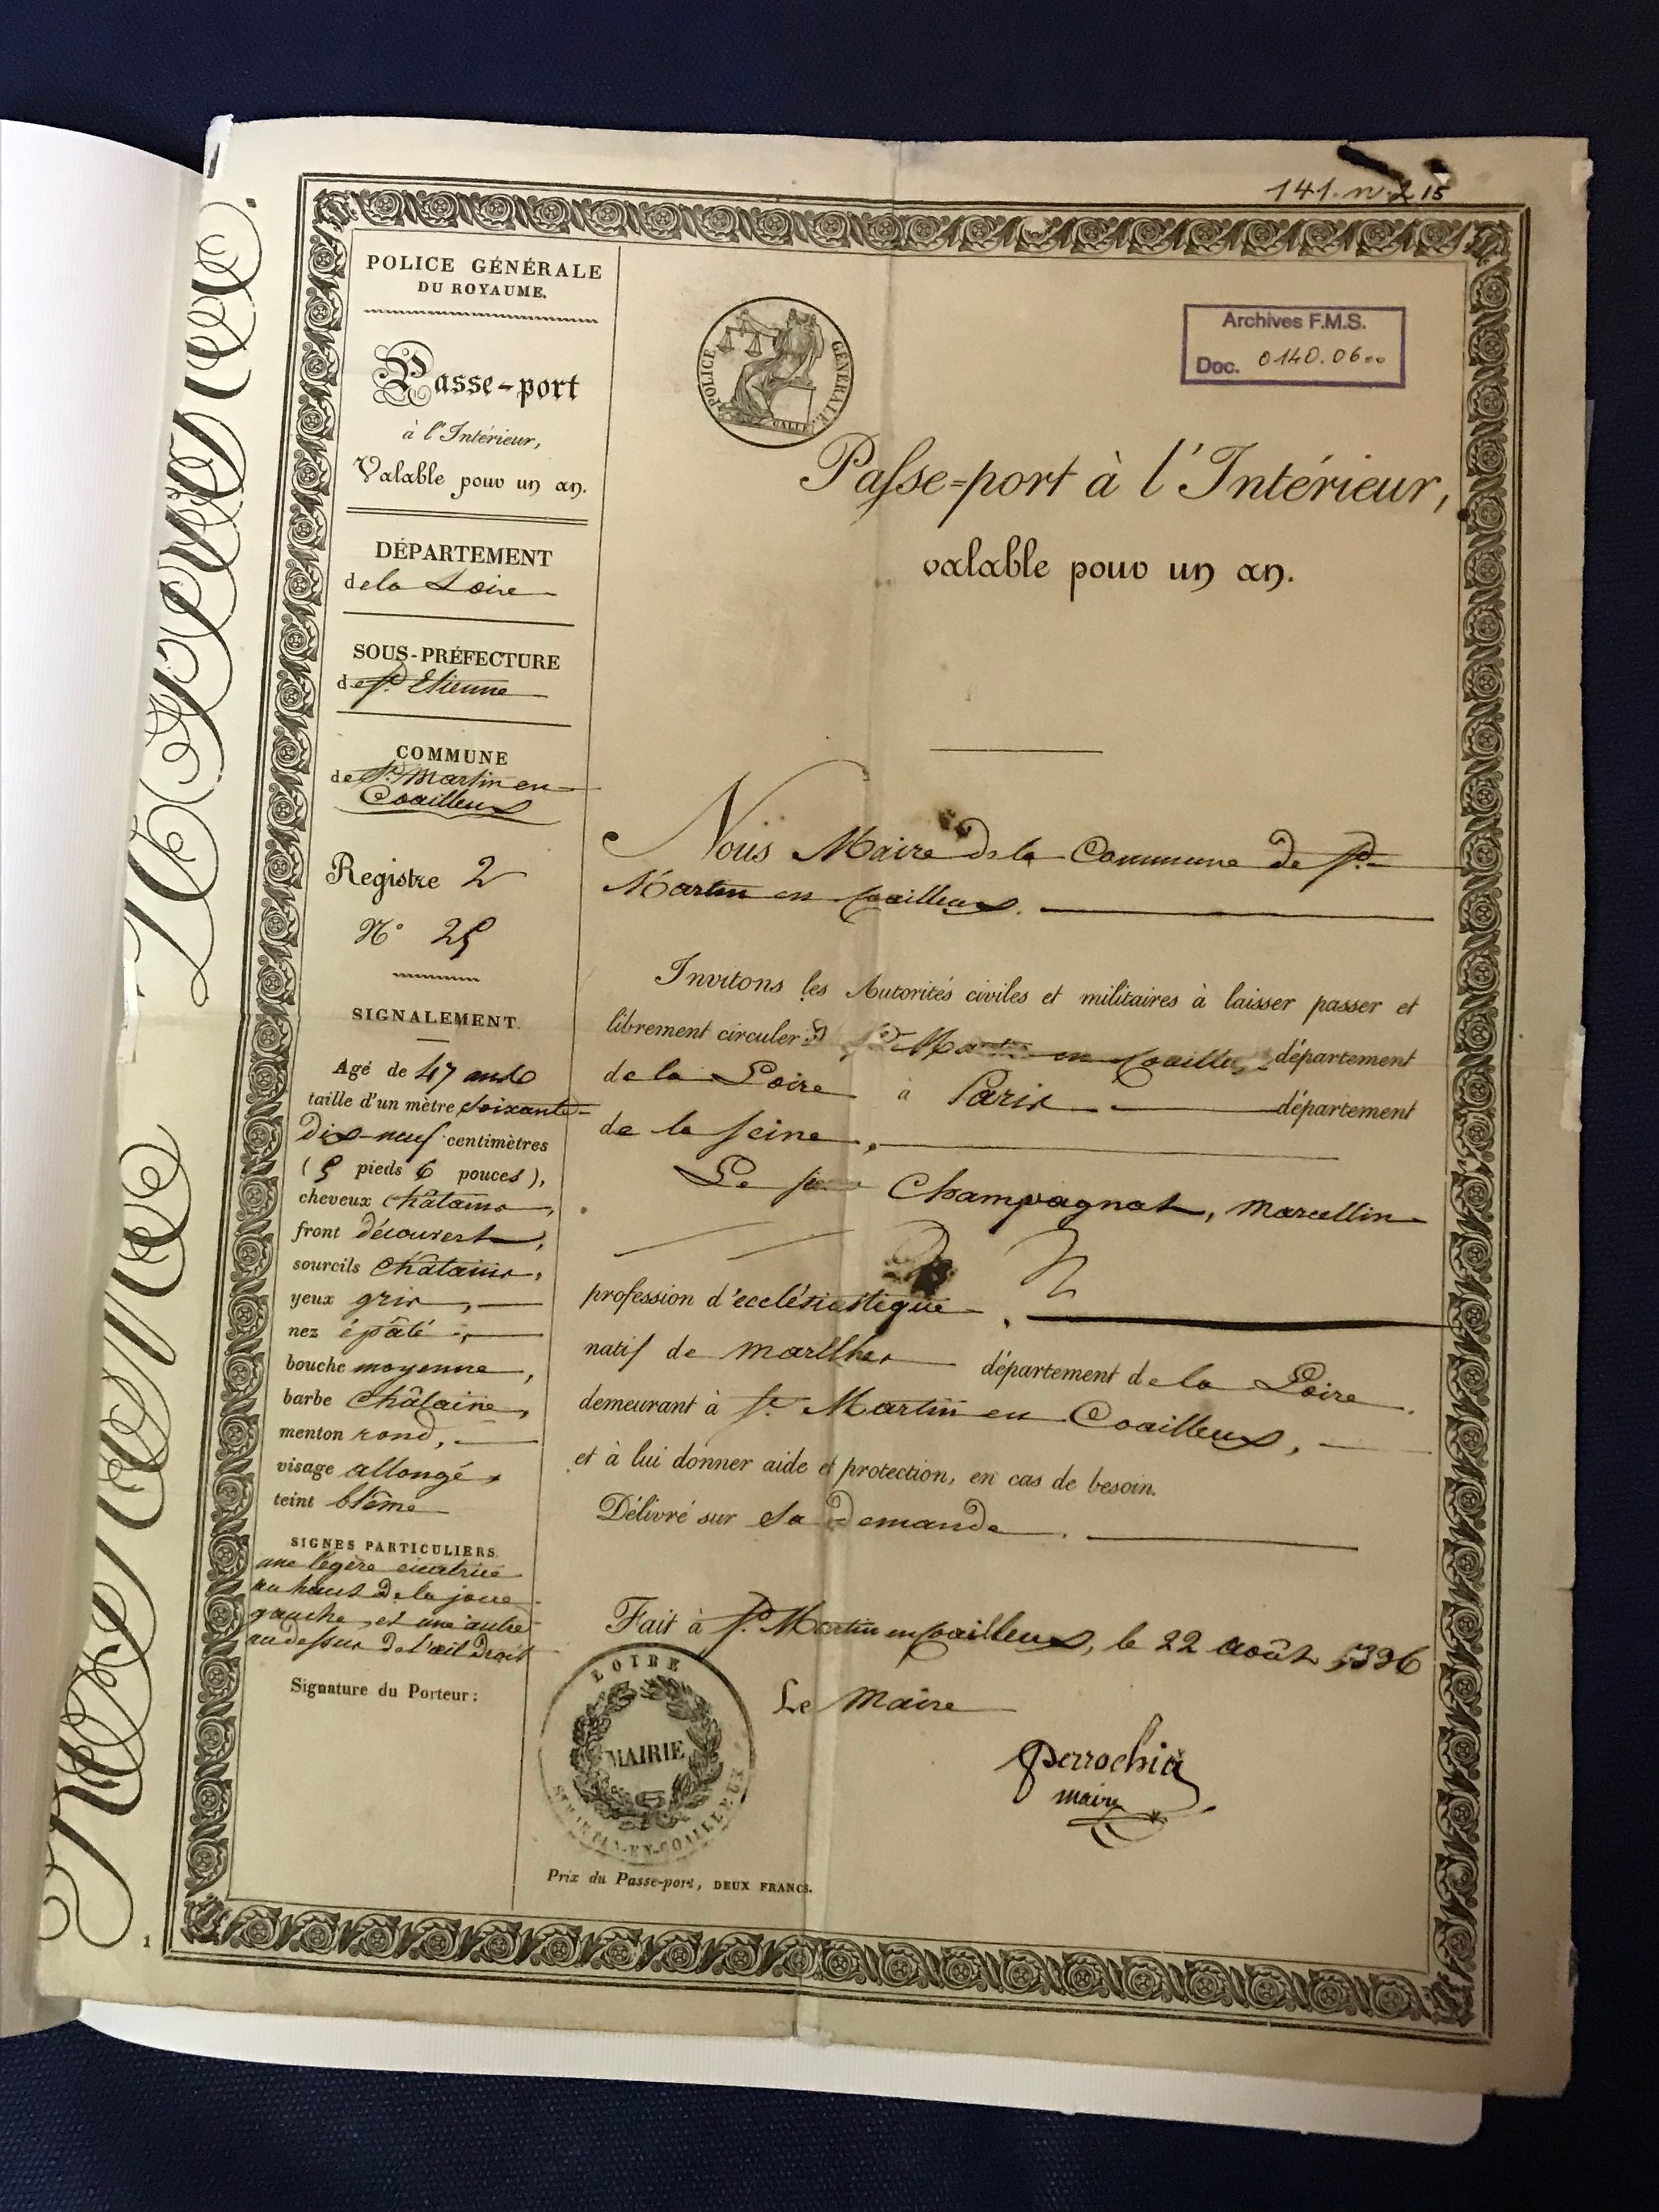 141. n. 2 15
POLICE GÉNÉRALE
DU ROYAUME.
Passe-port
à l'Intérieur,
Valable pour un an.
DÉPARTEMENT
de la Loire
SOUS-PRÉFECTURE
de St. Etienne
COMMUNE
de St. Martin en
Coailleux
Registre 2
N° 25
SIGNALEMENT.
Agé de 47 ans
taille d'un mètre soixante-
dix-neuf centimètres
(5 pieds 6 pouces),
cheveux châtains,
front découvert,
sourcils châtains,
yeux gris,
nez épâté,
bouche moyenne,
barbe châtaine,
menton rond,
visage allongé,
teint blême
SIGNES PARTICULIERS.
une légère cicatrice
au haut de la joue
gauche, et une autre
au dessus de l'œil droit
Signature du Porteur:
POLICE GÉNÉRALE.
GALLE.
Archives F.M.S.
Doc. 0140.0600
Passe-port à l'Intérieur,
valable pour un an.
Nous Maire de la Commune de St.
Martin en Coailleux.
Invitons les Autorités civiles et militaires à laisser passer et
librement circuler de St. Martin en Coailleux département
de la Loire à Paris département
de la Seine,
Le Champagnat, Marcellin
profession d'ecclésiastique,
natif de Marlhes département de la Loire.
demeurant à St. Martin en Coailleux,
et à lui donner aide et protection, en cas de besoin.
Délivré sur sa demande.
Fait à St. Martin en Coailleux, le 22 août 1836
Le Maire
Perrochia
maire
LOIRE
MAIRIE
ST MARTIN-EN-COAILLEUX
Prix du Passe-port, DEUX FRANCS.
1